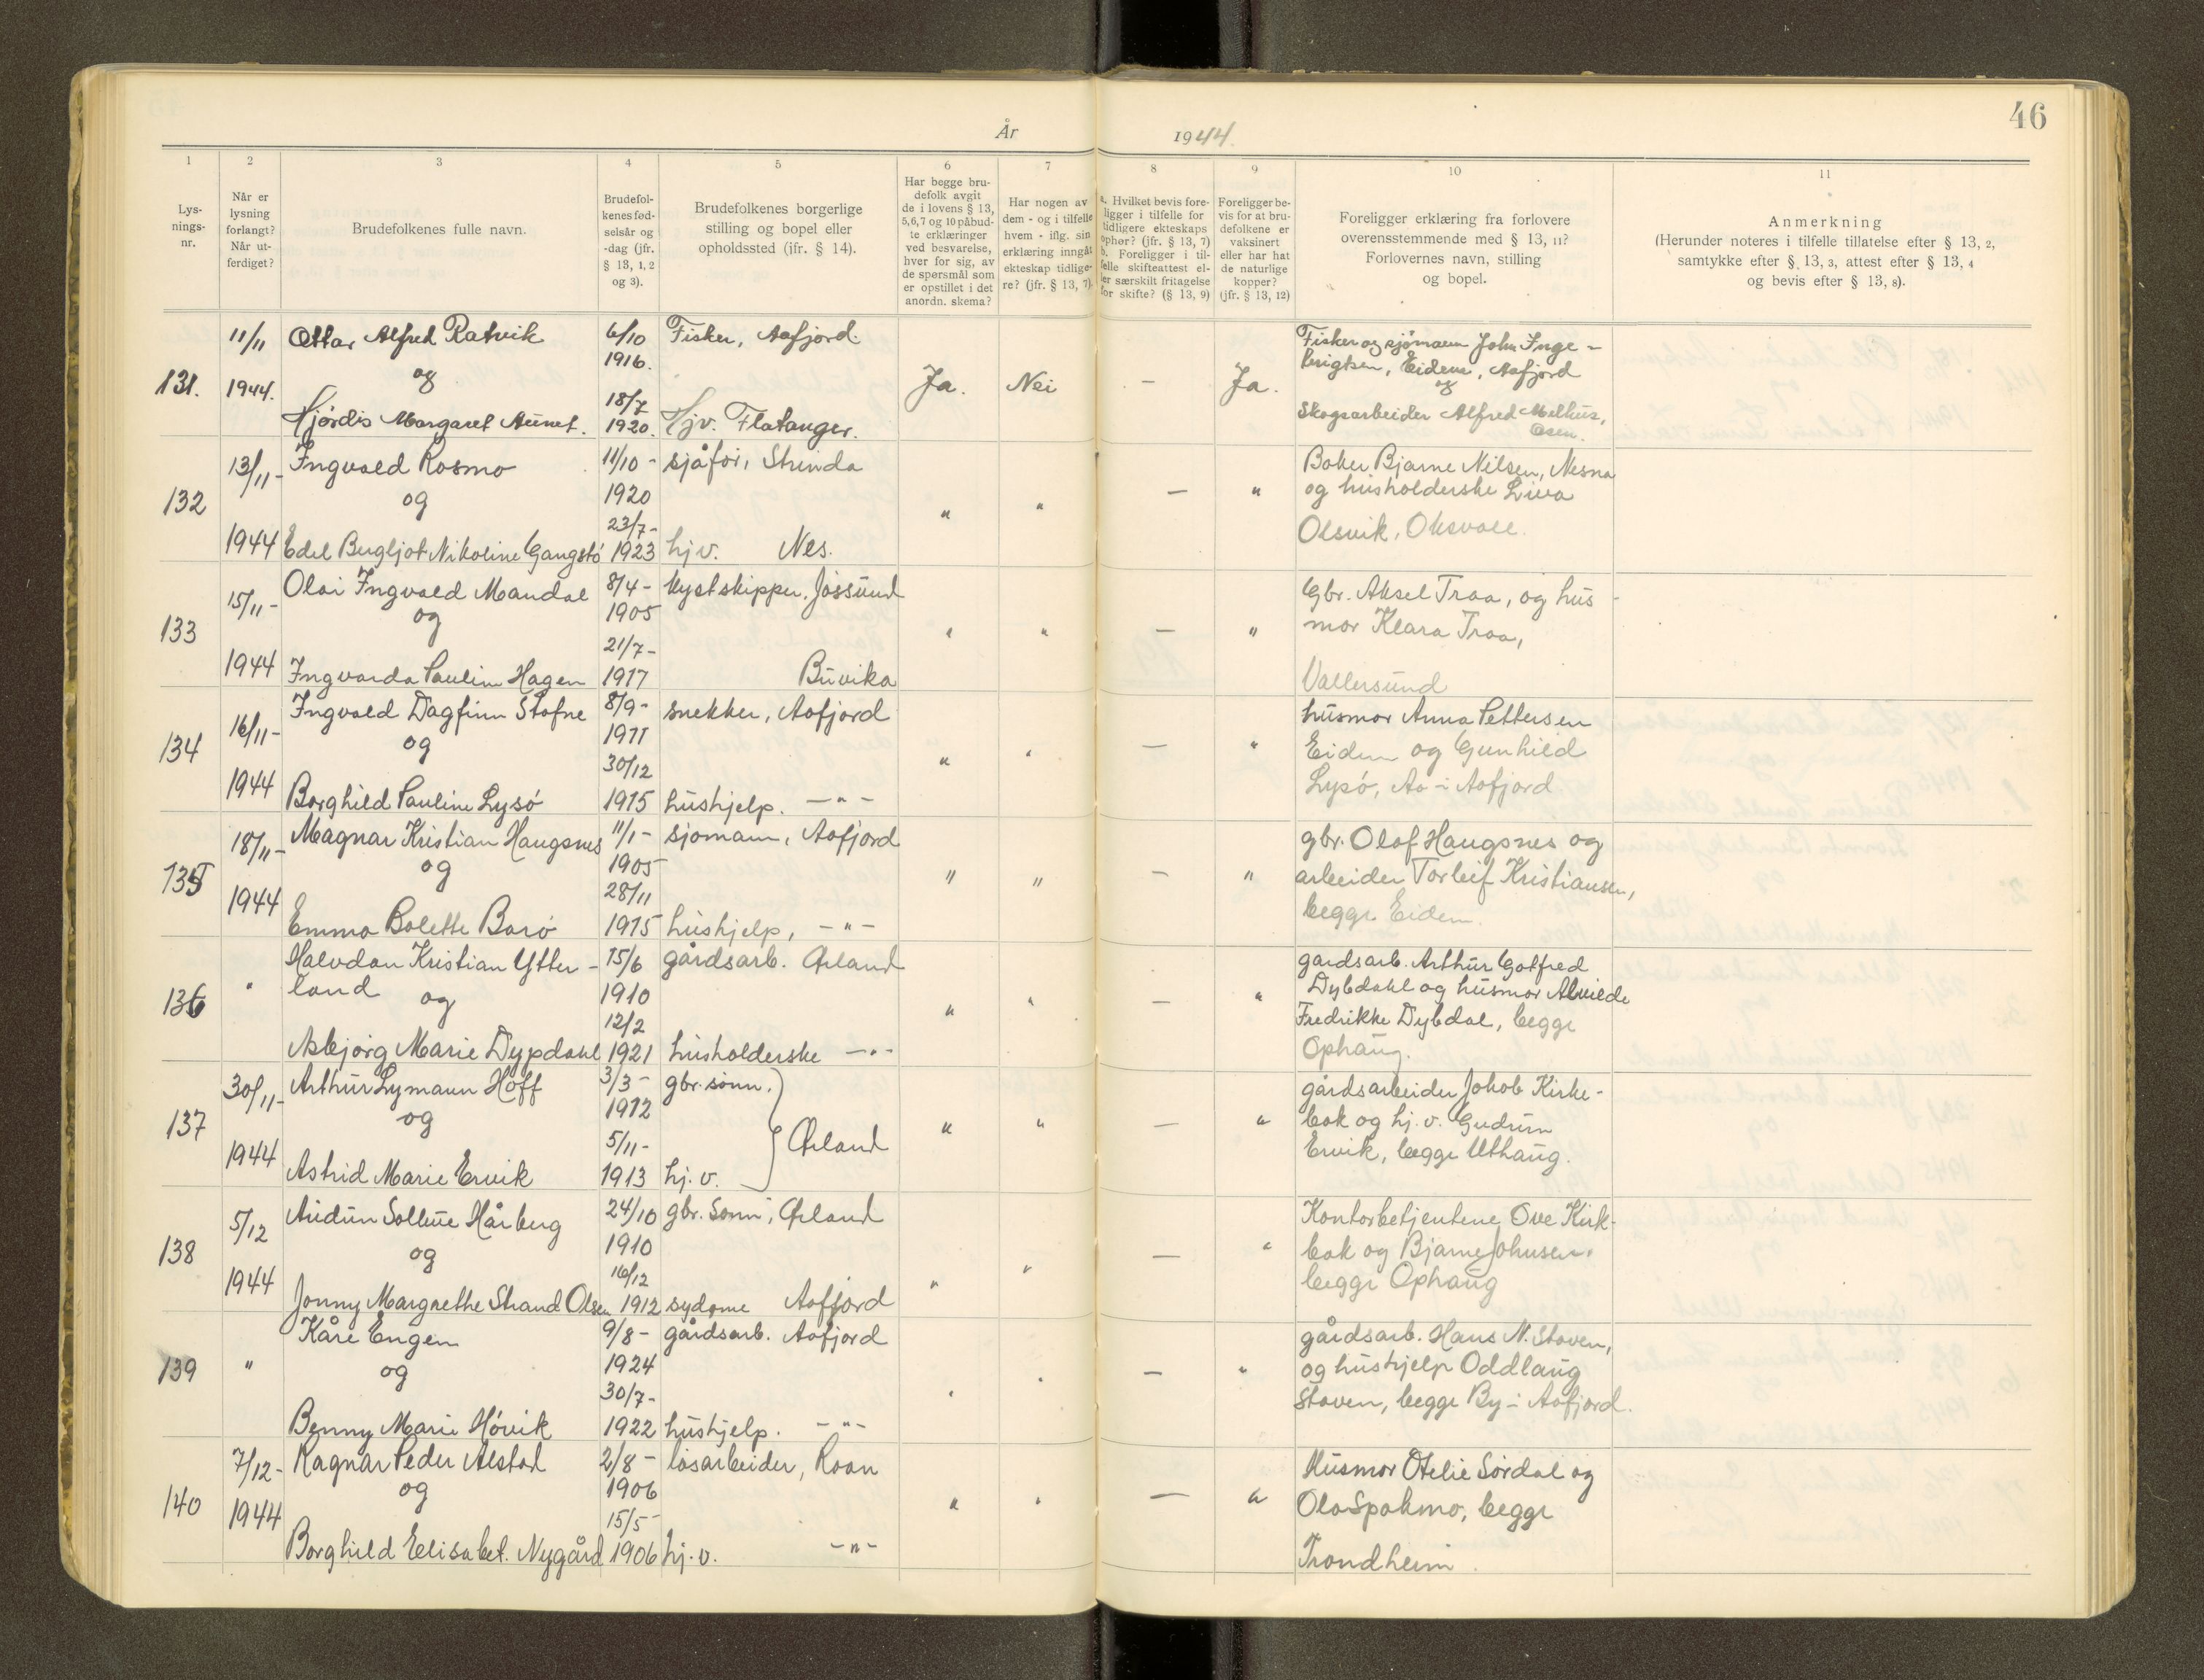 46
År 1944.
1
2
3
4
5
6
7
8
9
10
11
Lys-
nings-
nr.
Når er
lysning
forlangt?
Når ut-
ferdiget?
Brudefolkenes fulle navn.
Brudefol-
kenes fød-
selsår og
-dag (jfr.
§ 13, 1, 2
og 3).
Brudefolkenes borgerlige
stilling og bopel eller
opholdssted (jfr. § 14).
Har begge bru-
defolk avgit
de i lovens § 13,
5,6,7 og 10 påbud-
te erklæringer
ved besvarelse,
hver for sig, av
de spørsmål som
er opstillet i det
anordn. skema?
Har nogen av
dem - og i tilfelle
hvem - iflg. sin
erklæring inngåt
ekteskap tidlige-
re? (jfr. § 13, 7).
a. Hvilket bevis fore-
ligger i tilfelle for
tidligere ekteskaps
ophør? (jfr. § 13, 7)
b. Foreligger i til-
felle skifteattest el-
ler særskilt fritagelse
for skifte? (§ 13, 9)
Foreligger be-
vis for at bru-
defolkene er
vaksinert
eller har hat
de naturlige
kopper?
(jfr. § 13, 12)
Foreligger erklæring fra forlovere
overensstemmende med § 13, 11?
Forlovernes navn, stilling
og bopel.
Anmerkning
(Herunder noteres i tilfelle tillatelse efter § 13, 2,
samtykke efter § 13, 3, attest efter § 13, 4
og bevis efter § 13, 8).
131.
11/11
1944.
Ottar Alfred Ratvik
og
Hjørdis Margaret Aunet.
6/10
1916.
18/7
1920.
Fisker, Aafjord.
Hjv. Flatanger.
Ja.
Nei
—
Ja.
Fisker og sjømann John Inge-
brigtsen, Eidem, Aafjord
og
Skogsarbeider Alfred Melhus,
Osen.
132
13/11-
1944
Ingvald Rosmo
og
Edel Bergljot Nikoline Gangstø
11/10 -
1920
23/7-
1923
sjåfør, Strinda
hjv. Nes.
"
"
—
"
Baker Bjarne Nilsen, Nesna
og husholderske Liva
Olsvik, Oksvoll.
133
15/11-
1944
Olai Ingvald Mandal
og
Ingvarda Pauline Hagen
8/4-
1905
21/7-
1917
kystskipper, Jøssund
Buvika
"
"
—
"
Gbr. Aksel Traa, og hus-
mor Klara Traa,
Vallersund
134
16/11-
1944
Ingvald Dagfinn Stofne
og
Borghild Pauline Lysø
8/9-
1911
30/12
1915
snekker, Aafjord
hushjelp. —"—
"
"
—
"
husmor Anna Pettersen
Eidem og Gunhild
Lysø, Aa i Aafjord
135
18/11-
1944
Magnar Kristian Haugsnes
og
Emma Bolette Barø
11/1-
1905
28/11
1915
sjømann, Aafjord
hushjelp, —"—
"
"
—
"
gbr. Olaf Haugsnes og
arbeider Torleif Kristiansen,
begge Eidem.
136
"
Halvdan Kristian Ytter-
land og
Asbjørg Marie Dypdahl
15/6
1910
12/2
1921
gårdsarb. Ørland
husholderske —"—
"
"
—
"
gardsarb. Arthur Gotfred
Dybdahl og husmor Alvilde
Fredrikke Dybdal, begge
Ophaug.
137
30/11-
1944
Arthur Lymann Hoff
og
Astrid Marie Ervik
3/3-
1912
5/11-
1913
gbr. sønn.
Ørland
hj. v.
"
"
—
"
gårdsarbeider Jakob Kirke-
bak og hj. v. Gudrun
Ervik, begge Uthaug.
138
5/12
1944
Audun Sollie Hårberg
og
Jonny Margrethe Strand Olsen
24/10
1910
16/12
1912
gbr. Sønn, Ørland
sydame Aafjord
"
"
—
"
Kontorbetjentene Ove Kirk-
bak og Bjarne Johnsen,
begge Ophaug
139
"
Kåre Engen
og
Benny Marie Høvik
9/8-
1924
30/7-
1922
gårdsarb. Aafjord
hushjelp. —"—
"
"
—
"
gårdsarb. Hans N. Staven,
og hushjelp Oddlaug
Staven, begge By i Aafjord.
140
7/12-
1944
Ragnar Peder Alstad
og
Borghild Elisabet. Nygård
2/8-
1906
15/5-
1906
løsarbeider, Roan
hj. v. —"—
"
"
—
"
Husmor Otelie Sørdal og
Ola Spakmo, begge
Trondheim.